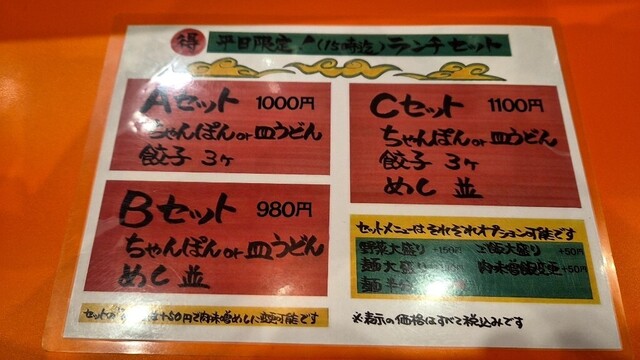 得 平日限定!(15時迄)ランチセット
Aセット 1000円
ちゃんぽんor皿うどん
餃子 3ヶ
Bセット 980円
ちゃんぽんor皿うどん
めし 並
セットの は+50円で肉味噌めしに変更可能です
Cセット 1100円
ちゃんぽんor皿うどん
餃子 3ヶ
めし 並
セットメニューはそれぞれオプション可能です
野菜大盛り +150円
ご飯大盛り +50円
麺大盛り
肉味噌飯変更 +50円
麺半
※表示の価格はすべて税込みです